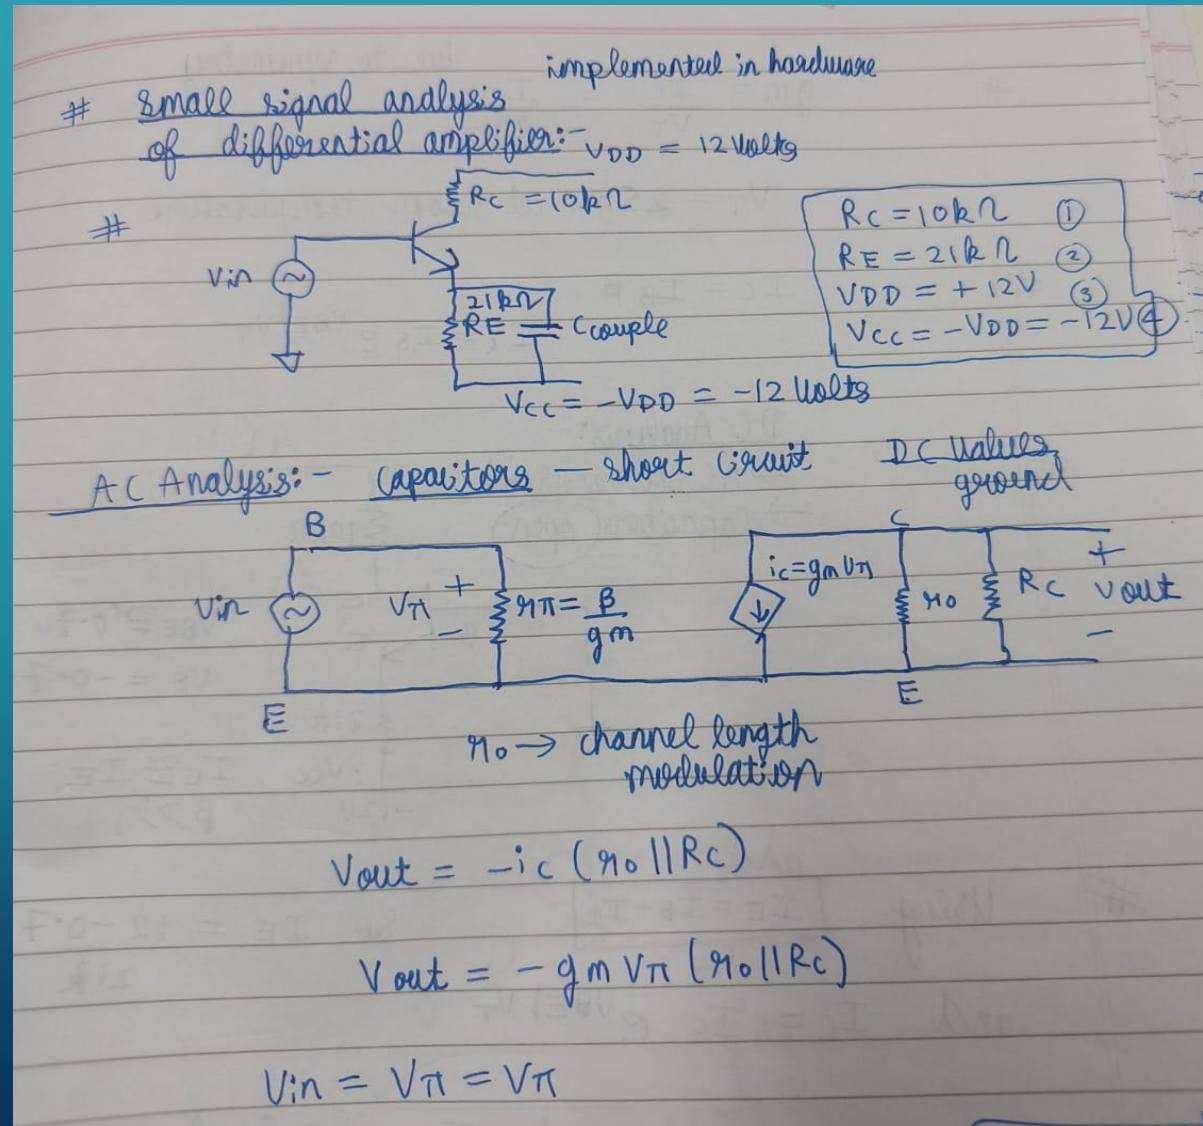 implemented in hardware
# small signal analysis
of differential amplifier:-
VDD = 12 Volts
RC = 10kΩ
#
Vin
21kΩ
RE
Ccouple
VCC = -VDD = -12 Volts
RC = 10kΩ ①
RE = 21kΩ ②
VDD = +12V ③
VCC = -VDD = -12V ④
AC Analysis:- capacitors — short circuit DC values
ground
B
C
Vin
Vπ
+
-
rπ = β/gm
ic = gmVπ
ro
RC
+
Vout
-
E
E
ro → channel length
modulation
Vout = -ic (ro||RC)
Vout = -gm Vπ (ro||RC)
Vin = Vπ = Vπ